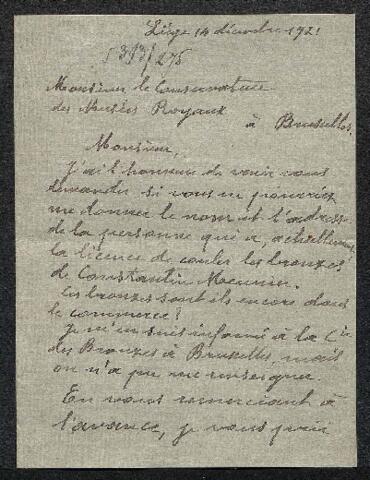 Liège 14 décembre 1921
5313/275
Monsieur le Conservateur
des Musées Royaux
à Bruxelles.
Monsieur,
J'ai l'honneur de venir vous
demander si vous ne pourriez
me donner le nom et l'adresse
de la personne qui a, actuellement
la licence de couler les bronzes
de Constantin Meunier.
Ces bronzes sont ils encore dans
le commerce?
Je m'en suis informé à la Cie
des Bronzes à Bruxelles, mais
on n'a pu me renseigner.
En vous remerciant à
l'avance, je vous prie